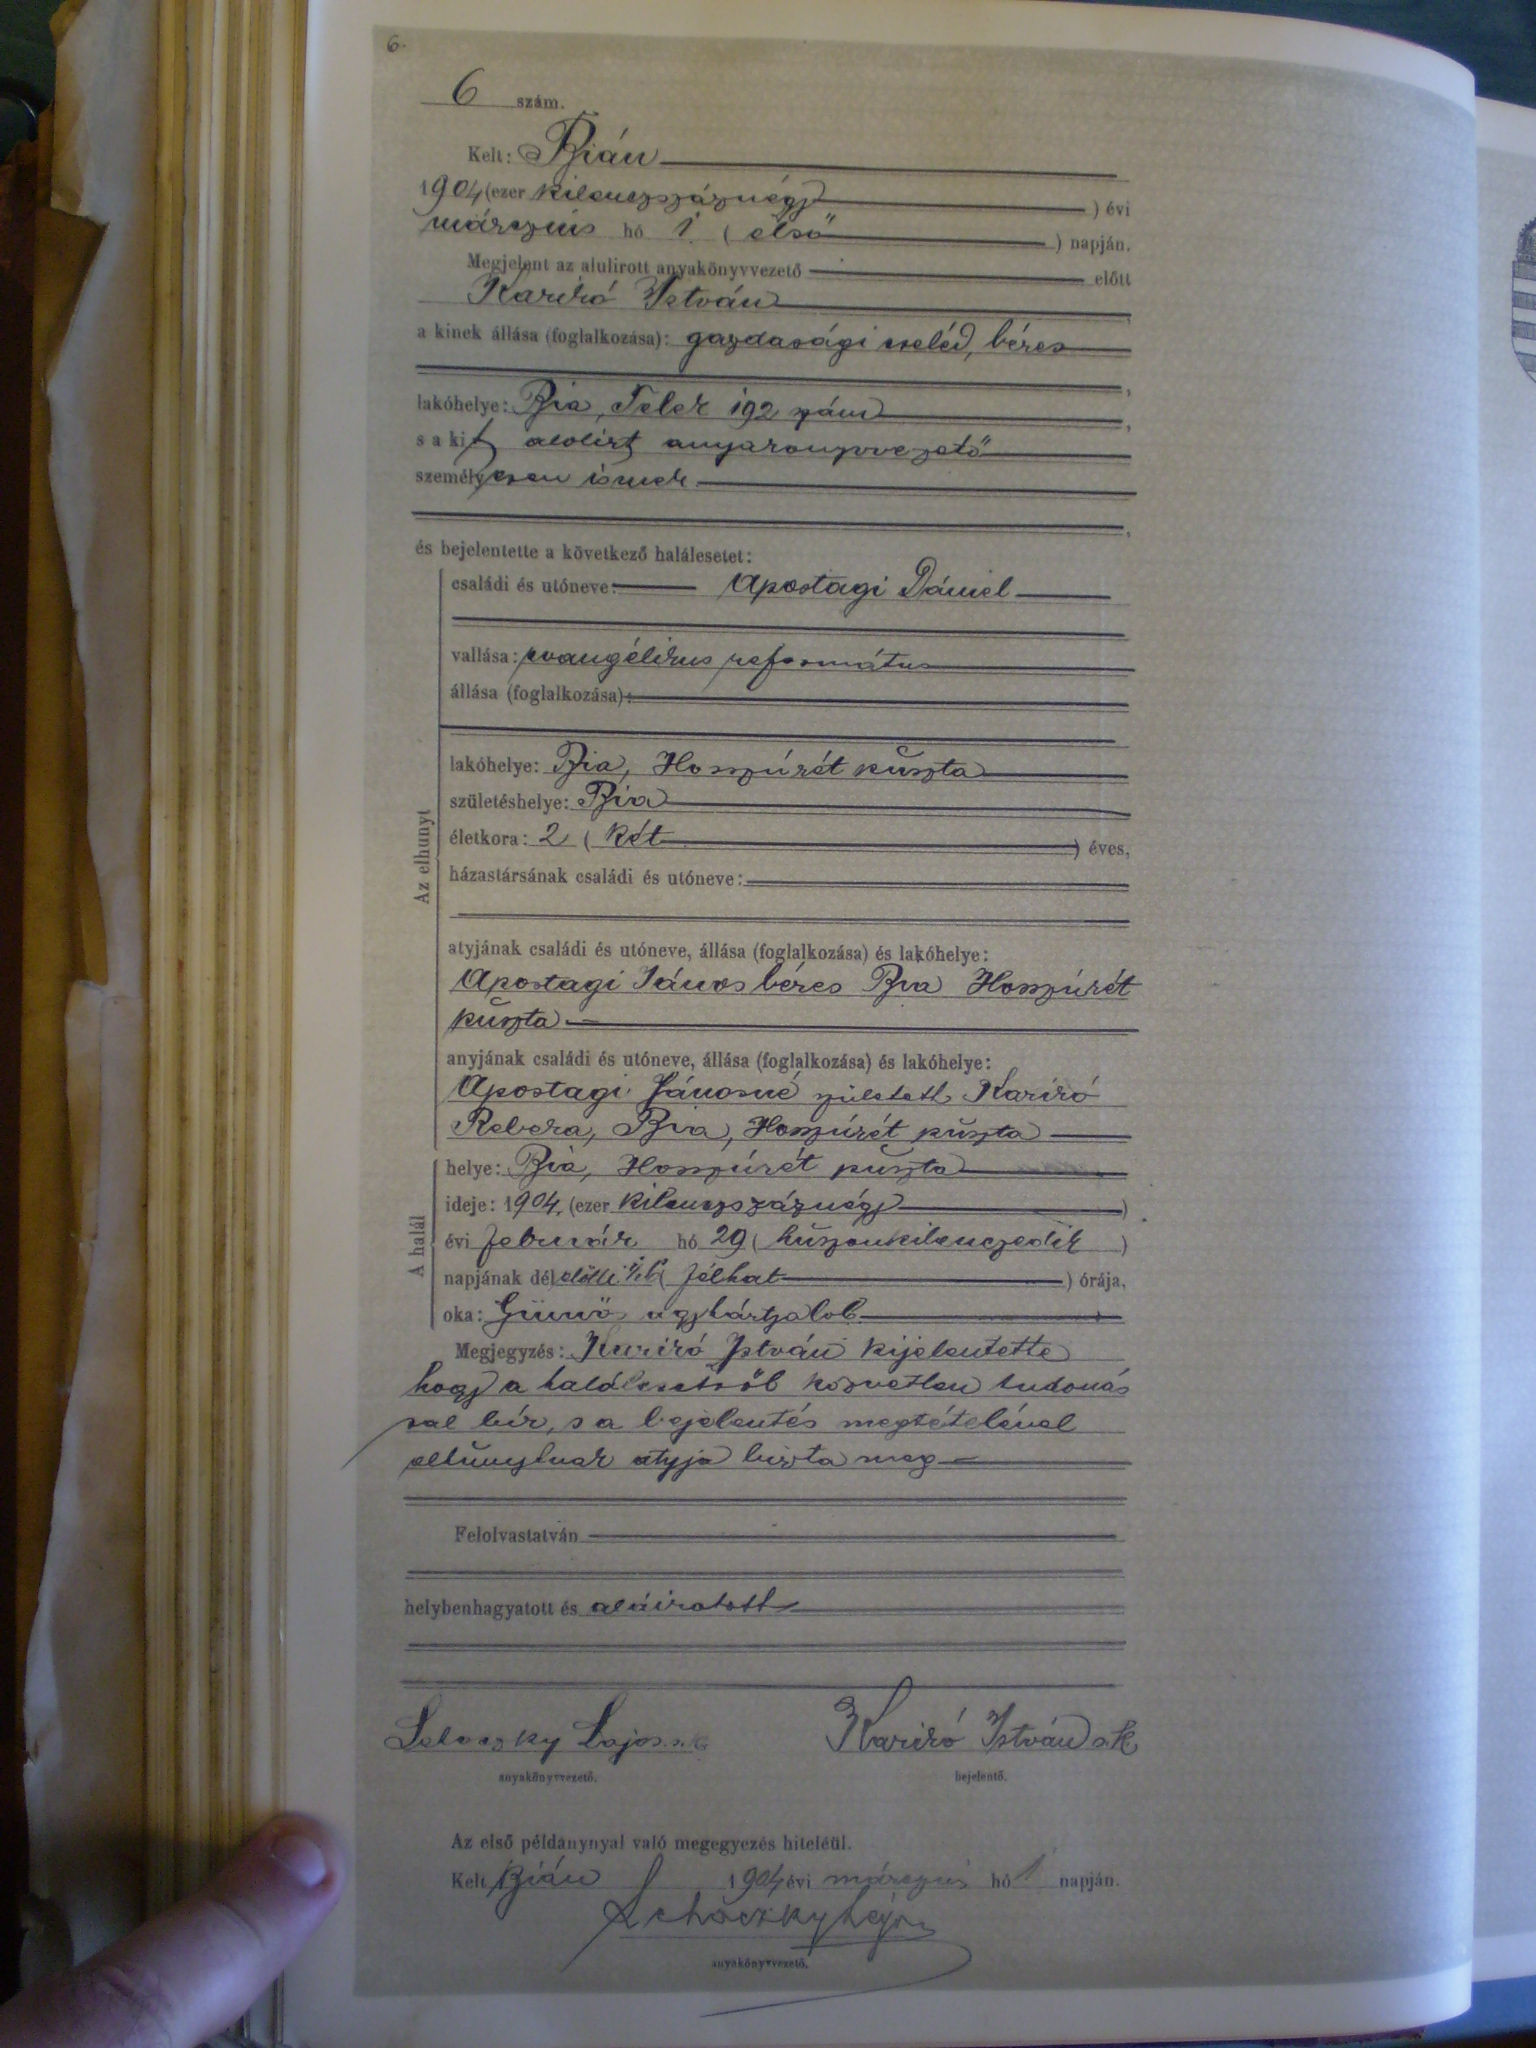 6.
6 szám.
Kelt: Bián
1904 (ezer kilenczszáznégy) évi
márczius hó 1. (első) napján.
Megjelent az alulirott anyakönyvvezető előtt
Karikó István
a kinek állása (foglalkozása): gazdasági cseléd, béres
lakóhelye: Bia, Telek 192 szám
s a kit alolirt anyakönyvvezető
személyesen ismek
és bejelentette a következő halálesetet:
Az elhunyt
családi és utóneve: Apostagi Dániel
vallása: evangélikus református
állása (foglalkozása):
lakóhelye: Bia, Hosszúrét puszta
születéshelye: Bia
életkora: 2 (két) éves,
házastársának családi és utóneve:
atyjának családi és utóneve, állása (foglalkozása) és lakóhelye:
Apostagi János béres Bia Hosszúrét
puszta
anyjának családi és utóneve, állása (foglalkozása) és lakóhelye:
Apostagi Jánosné született Karikó
Rebeka, Bia, Hosszúrét puszta
A halál
helye: Bia, Hosszúrét puszta
ideje: 1904. (ezer kilenczszáznégy)
évi február hó 29 (huszonkilenczedik)
napjának dél előtti ½6 (félhat) órája,
oka: agyhártyalob
Megjegyzés: Karikó István kijelentette
hogy a halálesetről közvetlen tudomás
sal bir, s a bejelentés megtételével
elhunytnak atyja bizta meg
Felolvastatván
helybenhagyatott és aláiratott
Lajos s.k.
Karikó István s.k.
anyakönyvvezető.
bejelentő.
Az első példánynyal való megegyezés hiteléül.
Kelt Bián 1904 évi márczius hó 1 napján.
Lajos
anyakönyvvezető.